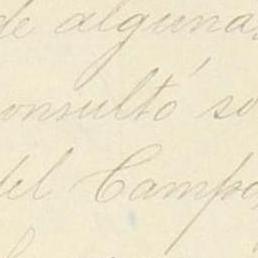 de algunas
consultó so
del Campo